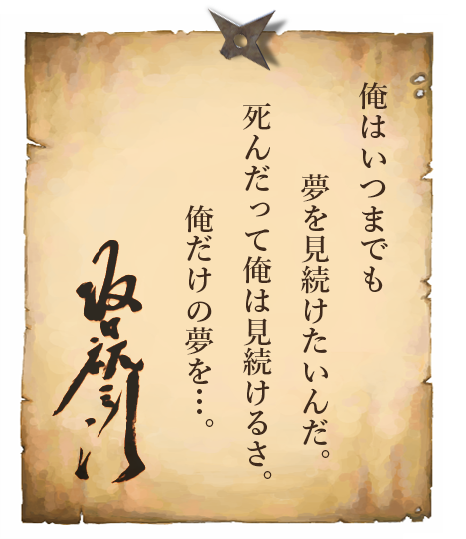 俺はいつまでも
夢を見続けたいんだ。
死んだって俺は見続けるさ。
俺だけの夢を…。